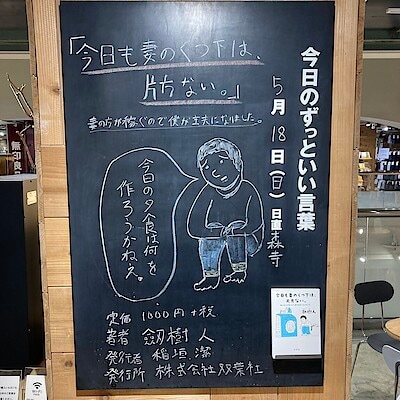 今日のずっといい言葉
5月18日(日) 日直 森寺
「今日も妻のくつ下は、
片方ない。」
妻のほうが稼ぐので僕が主夫になりました。
今日の夕食は何を
作ろうかねえ。
定価 1000円+税
著者 劔樹人
発行者 稲垣潔
発行所 株式会社双葉社
今日も妻のくつ下は、
片方ない。
無印良